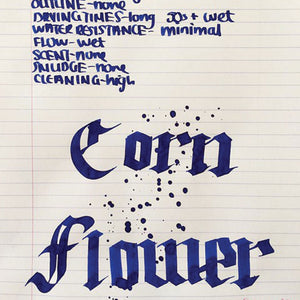 OUTLINE-none
DRYING TIMES-long 50s + wet
WATER RESISTANCE- minimal
FLOW-wet
SCENT-none
SMUDGE-none
CLEANING-high
Corn
flower